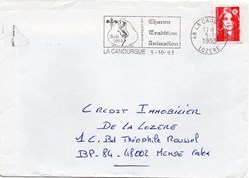 Charme
Tradition
Animation
LA CANOURGUE 5-10-93
48 LA CANOURGUE
17 H
1993
LOZERE
CREDIT IMMOBILIER
DE LA LOZERE
1 C. Bd Théophile Roussel
BP-84- 48002 MENDE Cedex